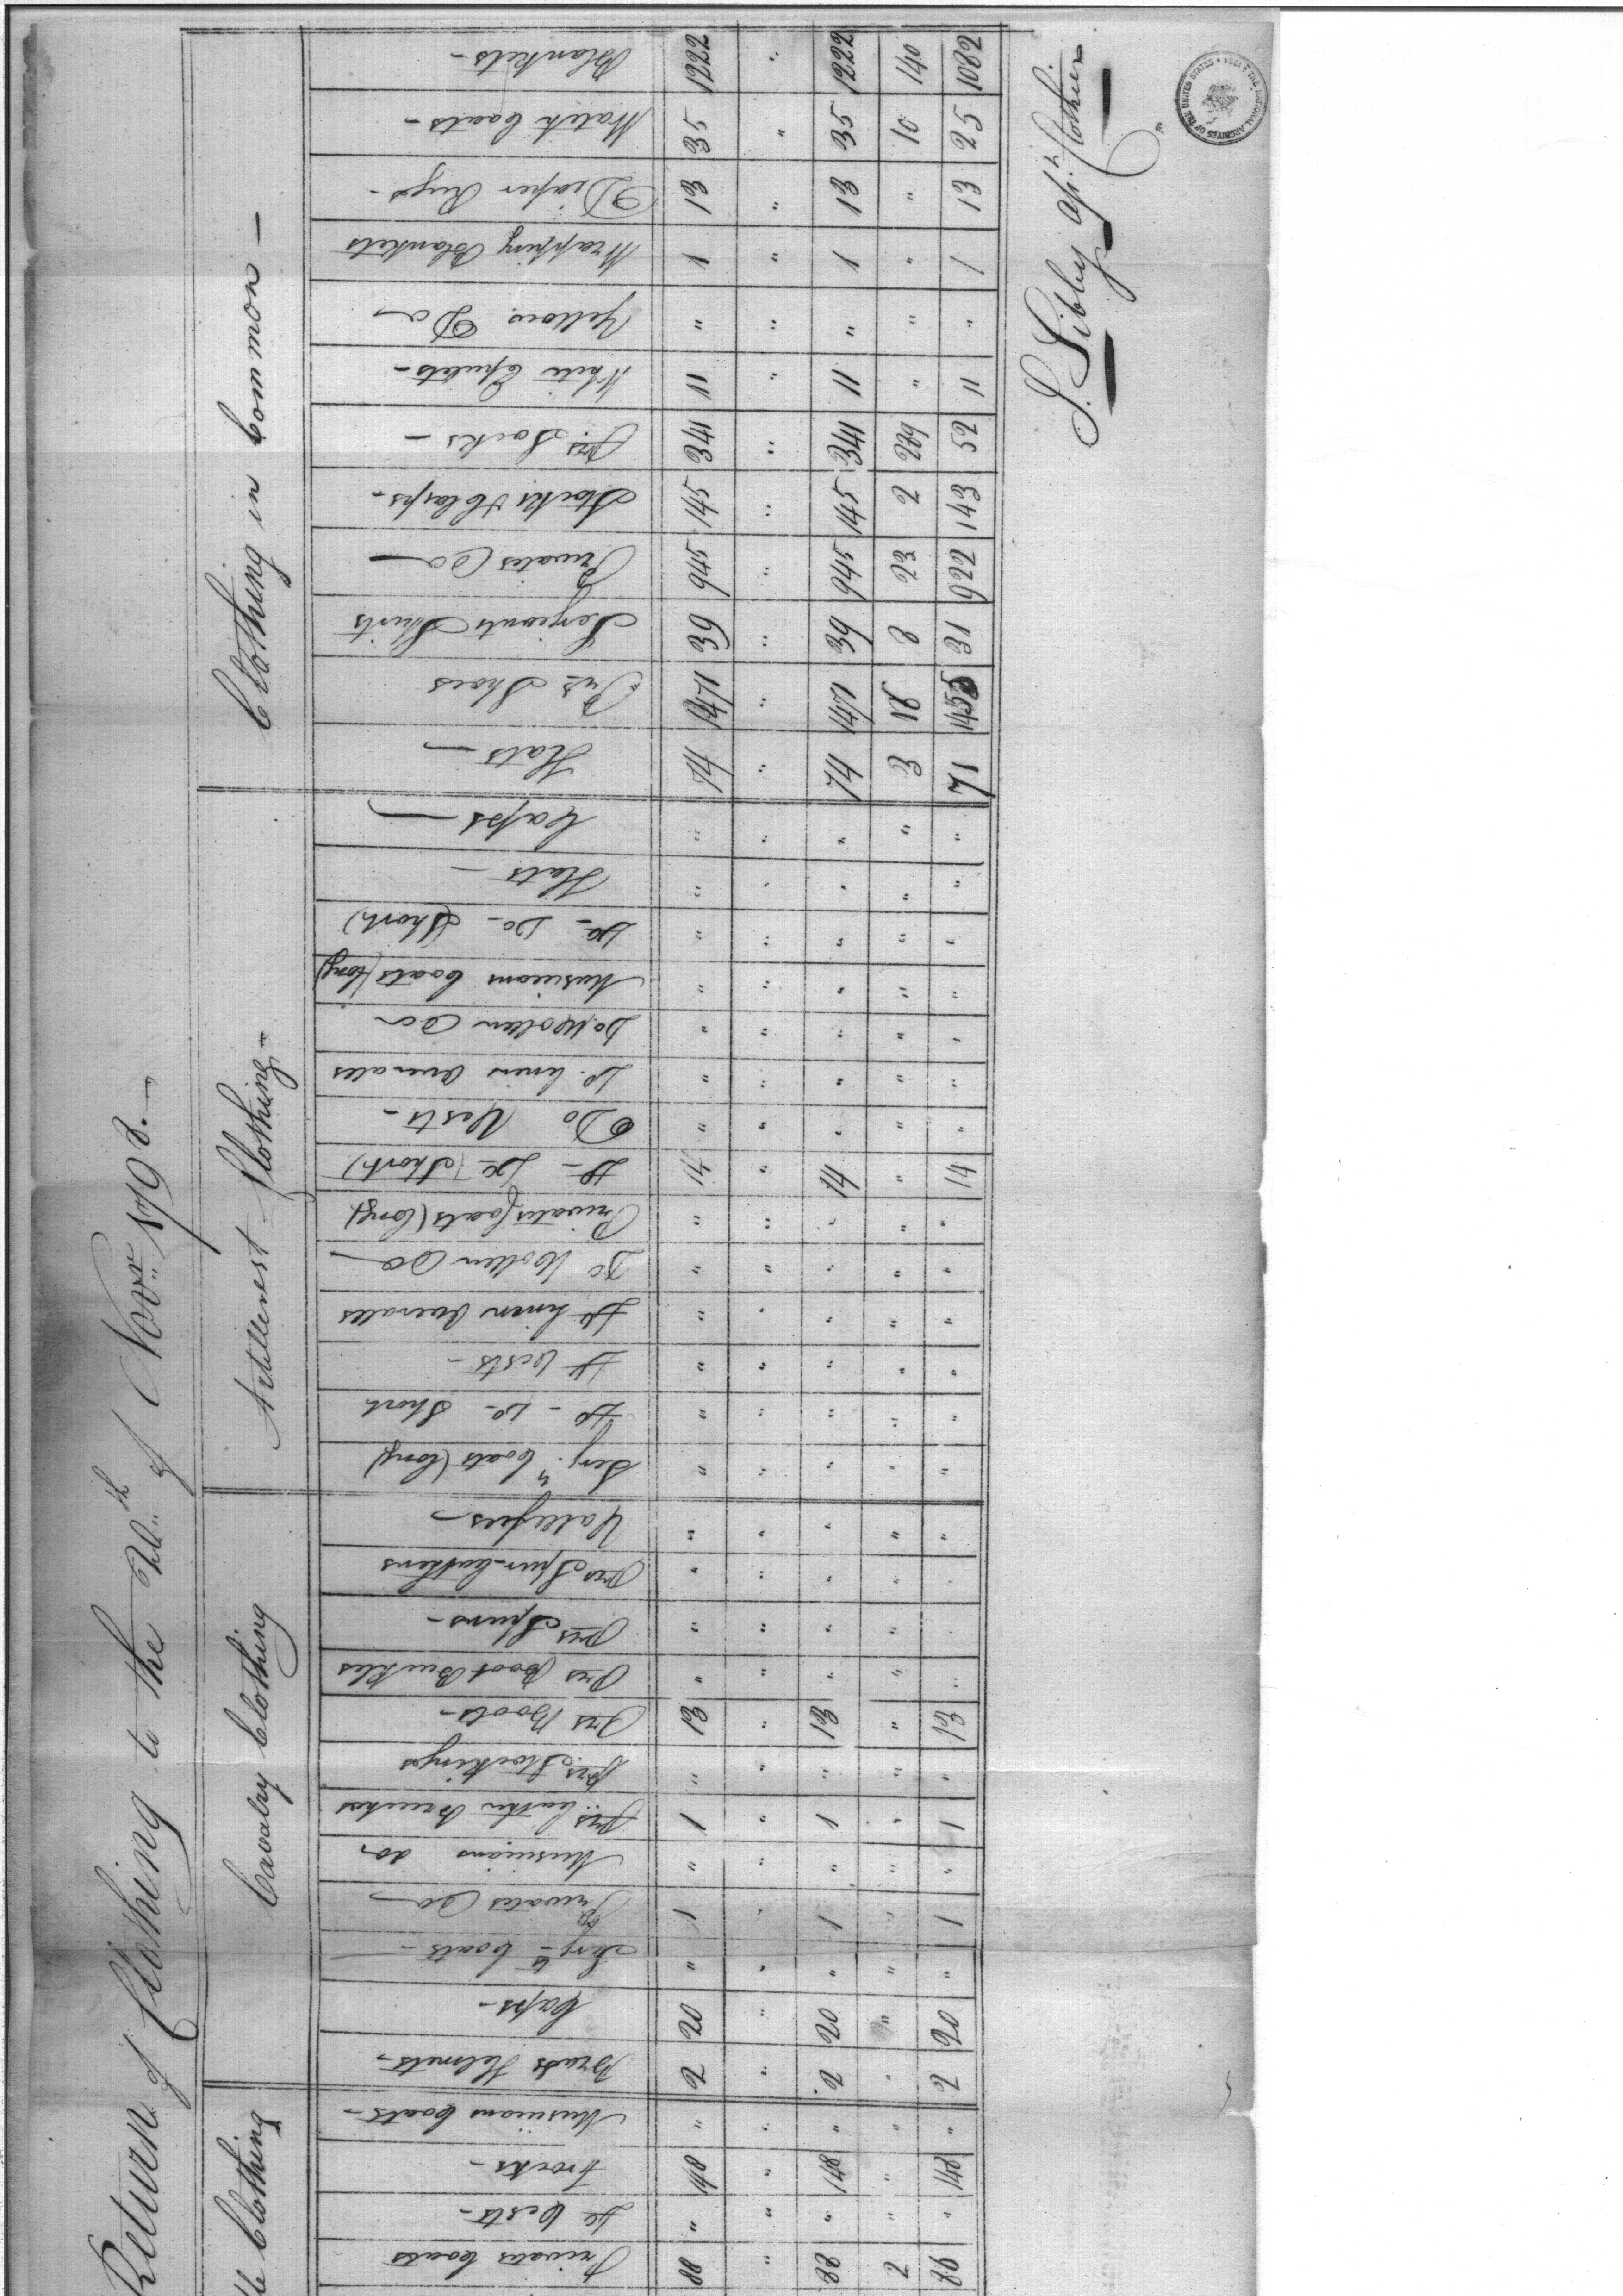 Return of Clothing to the 20th of Novr. 1798.—
le Clothing
Cavalry Clothing
Artillerist Clothing—
Clothing in Common—
Privates Coats 88 " 88 2 86
Do Vests— " " " " "
Frocks— 148 " 148 " 148
Musicians Coats— " " " " "
Brass Helmets— 2 " 2 " 2
Caps— 20 " 20 " 20
Serjts Coats— " " " " "
Privates Do— 1 " 1 " 1
Musicians do " " " " "
prs Leather Breeches 1 " 1 " 1
prs. Stockings " " " " "
Prs Boots— 13 " 13 " 13
Prs Boot Buckles " " " " "
prs Spurs— " " " " "
prs Spur-leathers " " " " "
Valeeses— " " " " "
Serjts. Coats (long) " " " " "
Do — Do — Short " " " " "
Do Vests— " " " " "
Do Linen Overalls " " " " "
Do Wollen Do— " " " " "
Privates Coats (long) " " " " "
Do — Do (Short) 14 " 14 " 14
Do Vests— " " " " "
Do. Linen Overalls " " " " "
Do. Wollen Do " " " " "
Musicians Coats (long) " " " " "
Do — Do — (Short) " " " " "
Hats— " " " " "
Caps— " " " " "
Hats— 74 " 74 3 71
Prs Shoes 1471 " 1471 18 1453
Serjeants Shirts 39 " 39 8 31
Privates Do— 945 " 945 23 922
Stocks & Clasps— 145 " 145 2 143
prs. Socks— 341 " 341 289 52
White Epulets— 11 " 11 " 11
Yellow Do— " " " " "
Wrapping Blankets 1 " 1 " 1
Diaper Rugs— 13 " 13 " 13
Watch Coats— 35 " 35 10 25
Blankets— 1222 " 1222 140 1082
S. Sibley Clothier
THE NATIONAL ARCHIVES OF THE UNITED STATES